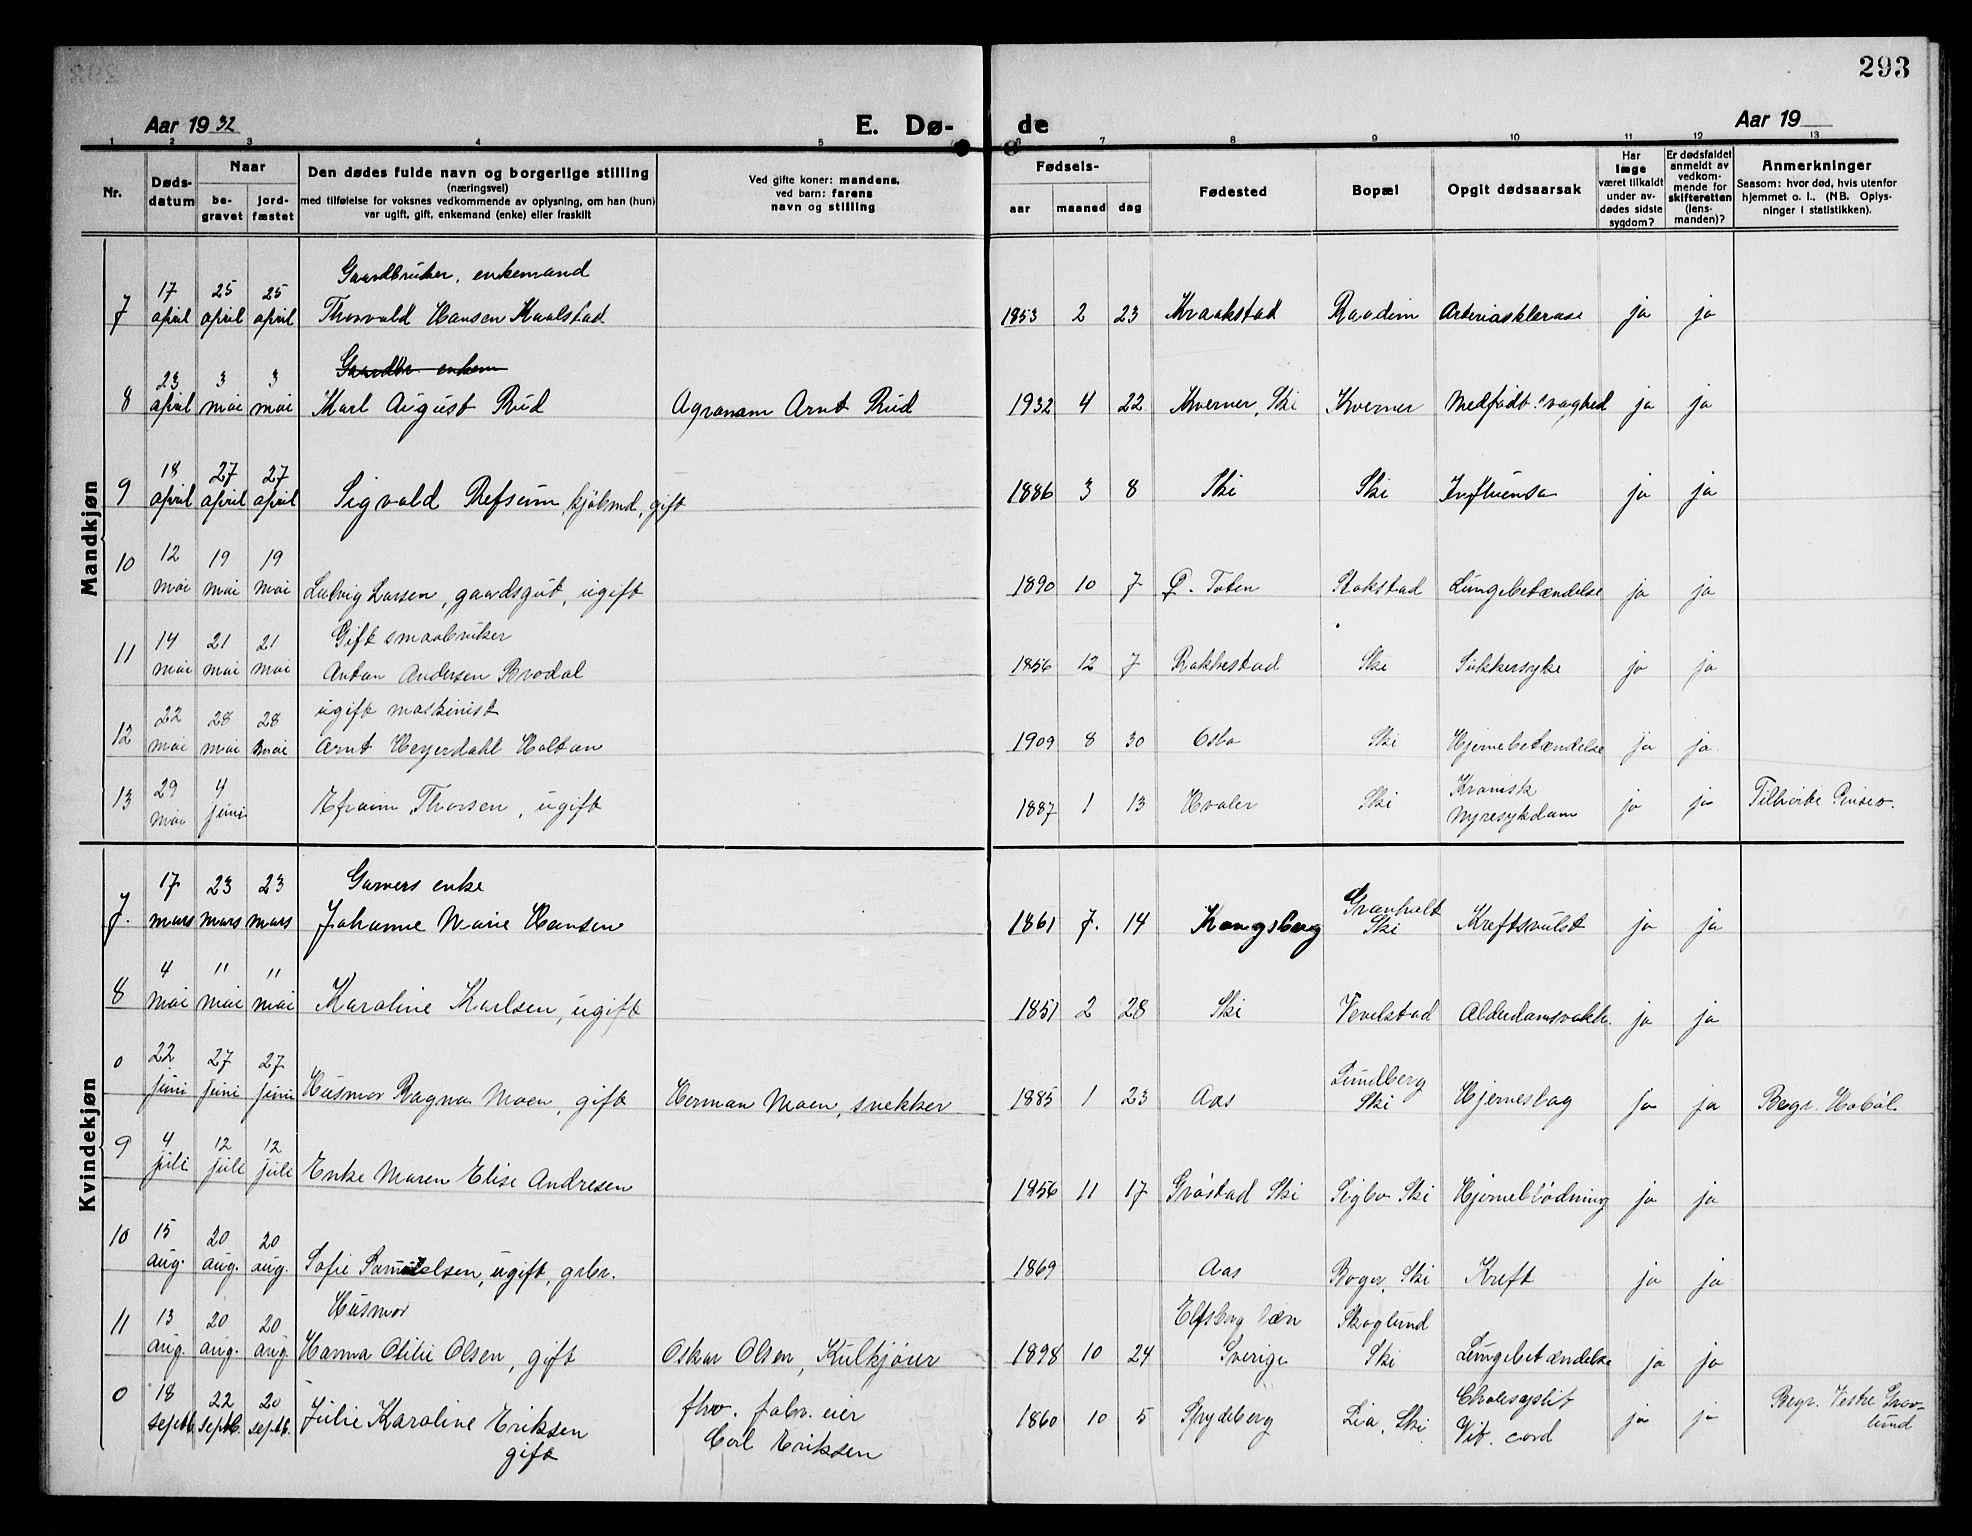 293
Aar 1932
E. Dø-
de
Aar 19
1 2 3 4 5 6 7 8 9 10 11 12 13
Nr.
Døds-
datum
Naar
be-
gravet
jord-
fæstet
Den dødes fulde navn og borgerlige stilling
(næringsvei)
med tilføielse for voksnes vedkommende av oplysning, om han (hun)
var ugift, gift, enkemand (enke) eller fraskilt
Ved gifte koner: mandens,
ved barn: farens
navn og stilling
Fødsels-
aar
maaned
dag
Fødested
Bopæl
Opgit dødsaarsak
Har
læge
været tilkaldt
under av-
dødes sidste
sygdom?
Er dødsfaldet
anmeldt av
vedkom-
mende for
skifteretten
(lens-
manden)?
Anmerkninger
Saasom: hvor død, hvis utenfor
hjemmet o. l.. (NB. Oplys-
ninger i statistikken).
Mandkjøn
Gaardbruker, enkemand
7 17 april 25 april 25 april Thorvald Hansen Kaalstad 1853 2 23 Kraakstad Raadim Arteriasklerose ja ja
Gaardbr. enkem
8 23 april 3 mai 3 mai Karl August Rud Agronom Arnt Rud 1932 4 22 Kverner, Ski Kverner Medfødt svaghed ja ja
9 18 april 27 april 27 april Sigvald Refsum, kjøbmd, gift 1886 3 8 Ski Ski Influensa ja ja
10 12 mai 19 mai 19 mai Ludvig Larsen, gaardsgut, ugift 1890 10 7 Ø. Toten Stokstad Lungebetændelse ja ja
Gift smaabruker
11 14 mai 21 mai 21 mai Anton Andersen Brodal 1856 12 7 Rakkestad Ski Sukkersyke ja ja
ugift maskinist
12 22 mai 28 mai 28 mai Arnt Heyerdahl Holtan 1909 8 30 Oslo Ski Hjernebetændelse ja ja
13 29 mai 4 juni Efraim Thorsen, ugift 1887 1 13 Hvaler Ski Kronisk nyresykdom ja ja Tilhørte Pinsev.
Kvindekjøn
Garvers enke
7. 17 mars 23 mars 23 mars Johanne Marie Hansen 1861 7. 14 Kongsberg Granholt Ski Kreftsvulst ja ja
8 4 mai 11 mai 11 mai Karoline Karlsen, ugift 1851 2 28 Ski Vevelstad Alderdomsvakh. ja ja
0 22 juni 27 juni 27 juni Husmor Ragna Moen, gift Herman Moen, snekker 1885 1 23 Aas Lundberg Ski Hjerneslag ja ja Begr. Hobøl
9 4 juli 12 juli 12 juli Enke Maren Elise Andresen 1856 11 17 Grøstad Ski Sigbo Ski Hjerneblødning ja ja
10 15 aug. 20 aug. 20 aug. Sofie Samuelsen, ugift, grbr. 1869 Aas Roger, Ski Kreft ja ja
Husmor
11 13 aug. 20 aug. 20 aug. Hanna Otilie Olsen, gift Oskar Olsen, Kulkjører 1898 10 24 Elfsborg læn Sverige Skoglund Ski Lungebetændelse ja ja
0 18 septb. 22 septb. 20 septb. Julie Karoline Eriksen gift fhv. fabr. eier Carl Eriksen 1860 10 5 Spydeberg Lia, Ski Vit. cord ja ja Begr. Vestre Grav-
lund